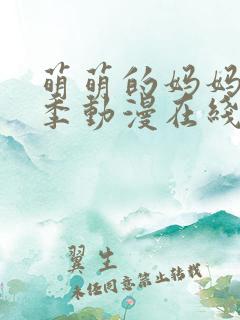 萌萌的妈妈
季動漫在綫
翼生
未经同意禁止转载